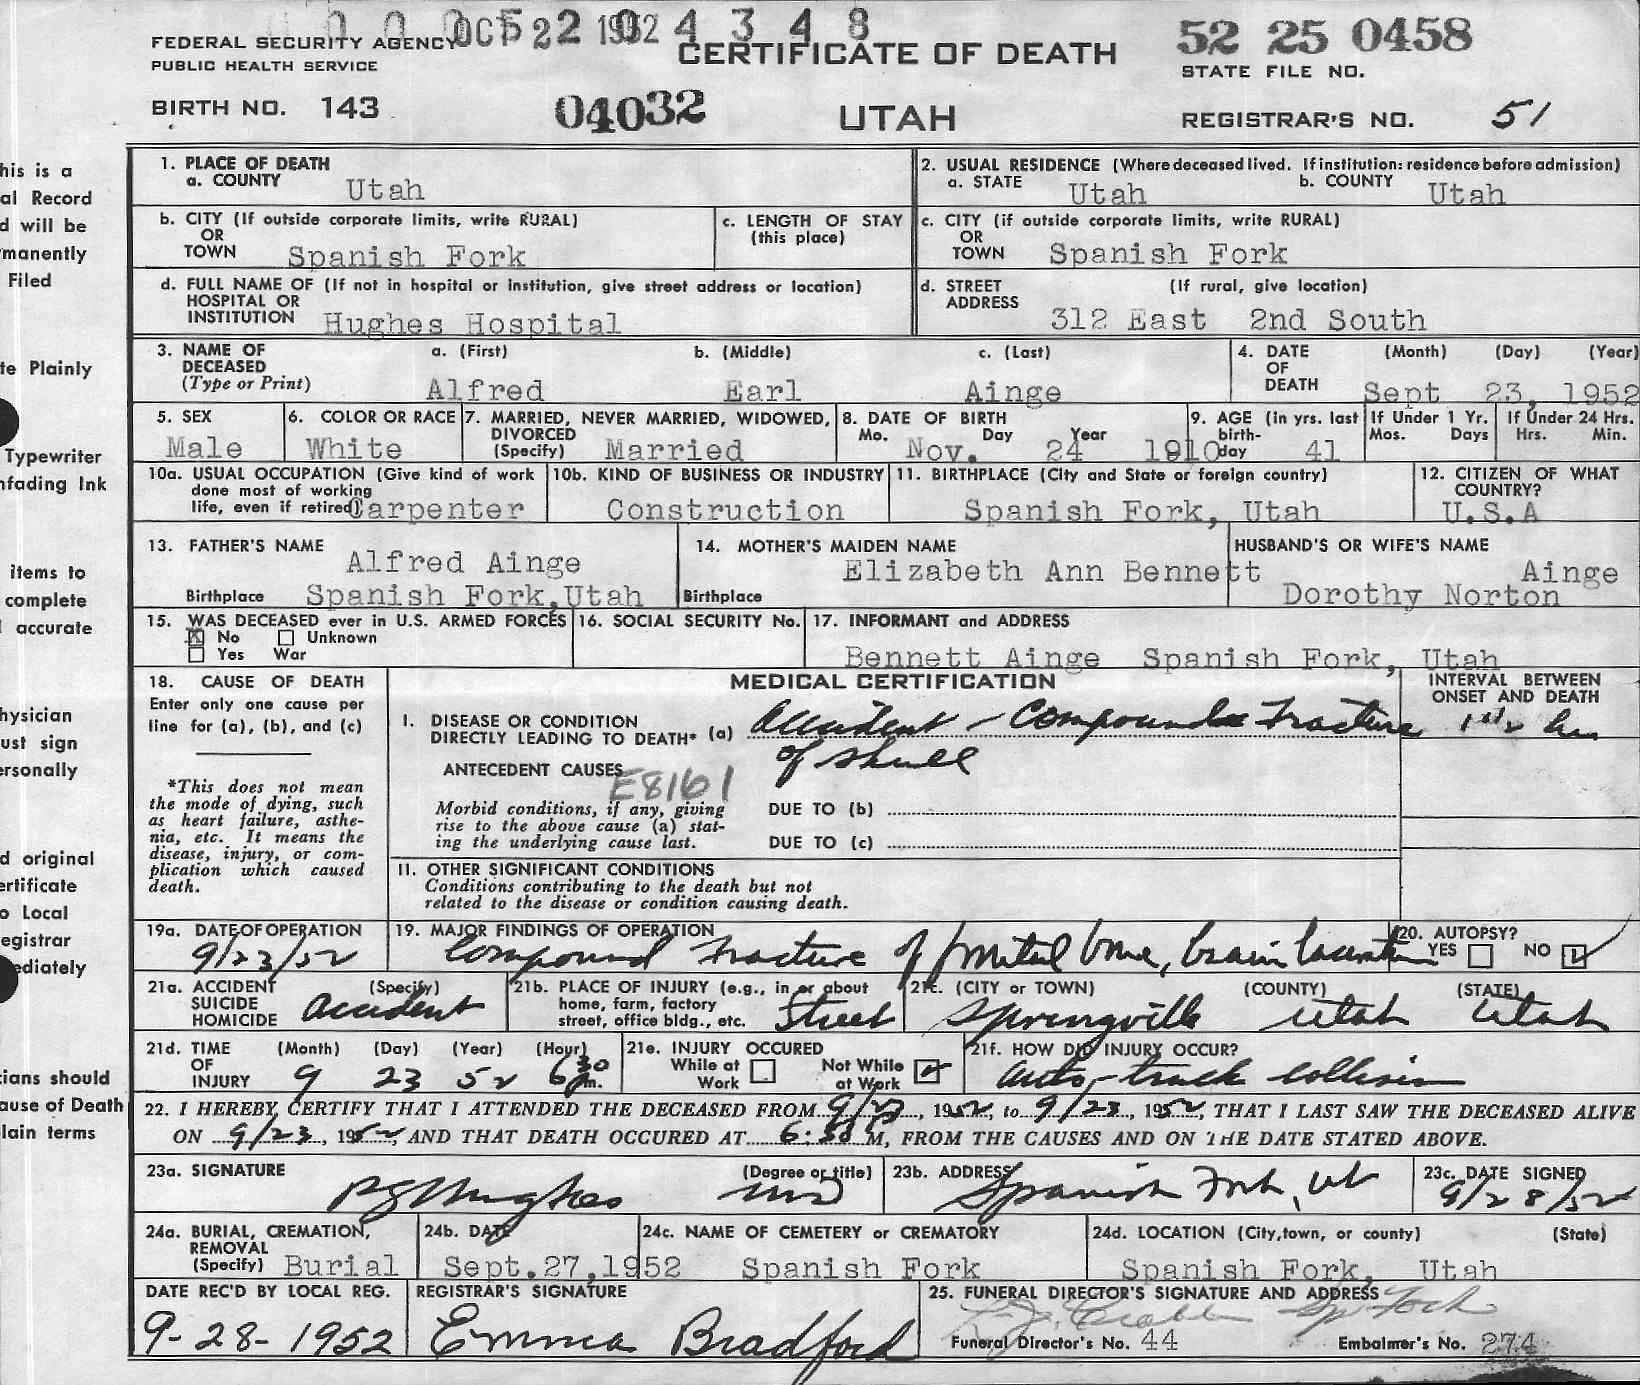 OCT 22 1952 0 4 3 4 8
52 25 0458
FEDERAL SECURITY AGENCY
PUBLIC HEALTH SERVICE
CERTIFICATE OF DEATH
STATE FILE NO.
BIRTH NO. 143
04032
UTAH
REGISTRAR'S NO. 51
his is a
al Record
d will be
manently
Filed
te Plainly
Typewriter
nfading Ink
items to
complete
accurate
hysician
ust sign
ersonally
d original
ertificate
o Local
egistrar
ediately
cians should
ause of Death
lain terms
1. PLACE OF DEATH
a. COUNTY Utah
2. USUAL RESIDENCE (Where deceased lived. If institution: residence before admission)
a. STATE Utah b. COUNTY Utah
b. CITY (If outside corporate limits, write RURAL)
OR
TOWN Spanish Fork
c. LENGTH OF STAY
(this place)
c. CITY (if outside corporate limits, write RURAL)
OR
TOWN Spanish Fork
d. FULL NAME OF (If not in hospital or institution, give street address or location)
HOSPITAL OR
INSTITUTION Hughes Hospital
d. STREET (If rural, give location)
ADDRESS 312 East 2nd South
3. NAME OF a. (First) b. (Middle) c. (Last)
DECEASED
(Type or Print) Alfred Earl Ainge
4. DATE (Month) (Day) (Year)
OF
DEATH Sept 23, 1952
5. SEX
Male
6. COLOR OR RACE
White
7. MARRIED, NEVER MARRIED, WIDOWED,
DIVORCED
(Specify) Married
8. DATE OF BIRTH
Mo. Day Year
Nov. 24 1910
9. AGE (in yrs. last
birth-
day 41
If Under 1 Yr.
Mos. Days
If Under 24 Hrs.
Hrs. Min.
10a. USUAL OCCUPATION (Give kind of work
done most of working
life, even if retired) Carpenter
10b. KIND OF BUSINESS OR INDUSTRY
Construction
11. BIRTHPLACE (City and State or foreign country)
Spanish Fork, Utah
12. CITIZEN OF WHAT
COUNTRY?
U.S.A
13. FATHER'S NAME
Alfred Ainge
Birthplace Spanish Fork,Utah
14. MOTHER'S MAIDEN NAME
Elizabeth Ann Bennett
Birthplace
HUSBAND'S OR WIFE'S NAME
Ainge
Dorothy Norton
15. WAS DECEASED ever in U.S. ARMED FORCES
X No Unknown
Yes War
16. SOCIAL SECURITY No.
17. INFORMANT and ADDRESS
Bennett Ainge Spanish Fork, Utah
18. CAUSE OF DEATH
Enter only one cause per
line for (a), (b), and (c)
*This does not mean
the mode of dying, such
as heart failure, asthe-
nia, etc. It means the
disease, injury, or com-
plication which caused
death.
MEDICAL CERTIFICATION
INTERVAL BETWEEN
ONSET AND DEATH
I. DISEASE OR CONDITION
DIRECTLY LEADING TO DEATH* (a) Accident - Compound Fracture
of skull
1 1/2 hr
ANTECEDENT CAUSES
E8161
Morbid conditions, if any, giving
rise to the above cause (a) stat-
ing the underlying cause last.
DUE TO (b)
DUE TO (c)
II. OTHER SIGNIFICANT CONDITIONS
Conditions contributing to the death but not
related to the disease or condition causing death.
19a. DATE OF OPERATION
9/23/52
19. MAJOR FINDINGS OF OPERATION
Compound Fracture of bone, brain
20. AUTOPSY?
YES NO
21a. ACCIDENT (Specify)
SUICIDE
HOMICIDE Accident
21b. PLACE OF INJURY (e.g., in or about
home, farm, factory
street, office bldg., etc. Street
21c. (CITY or TOWN) (COUNTY) (STATE)
Springville Utah Utah
21d. TIME (Month) (Day) (Year) (Hour)
OF
INJURY 9 23 52 6 30 m.
21e. INJURY OCCURED
While at Work Not While at Work
21f. HOW DID INJURY OCCUR?
Auto-truck collision
22. I HEREBY CERTIFY THAT I ATTENDED THE DECEASED FROM 9/23, 1952, to 9/23, 1952, THAT I LAST SAW THE DECEASED ALIVE
ON 9/23, 1952, AND THAT DEATH OCCURED AT 6:50 M, FROM THE CAUSES AND ON THE DATE STATED ABOVE.
23a. SIGNATURE (Degree or title)
Hughes MD
23b. ADDRESS
Spanish Fork, Ut
23c. DATE SIGNED
9/28/52
24a. BURIAL, CREMATION,
REMOVAL
(Specify) Burial
24b. DATE
Sept.27,1952
24c. NAME OF CEMETERY OR CREMATORY
Spanish Fork
24d. LOCATION (City,town, or county) (State)
Spanish Fork, Utah
DATE REC'D BY LOCAL REG.
9-28-1952
REGISTRAR'S SIGNATURE
Emma Bradford
25. FUNERAL DIRECTOR'S SIGNATURE AND ADDRESS
Sp Fork
Funeral Director's No. 44 Embalmer's No. 274